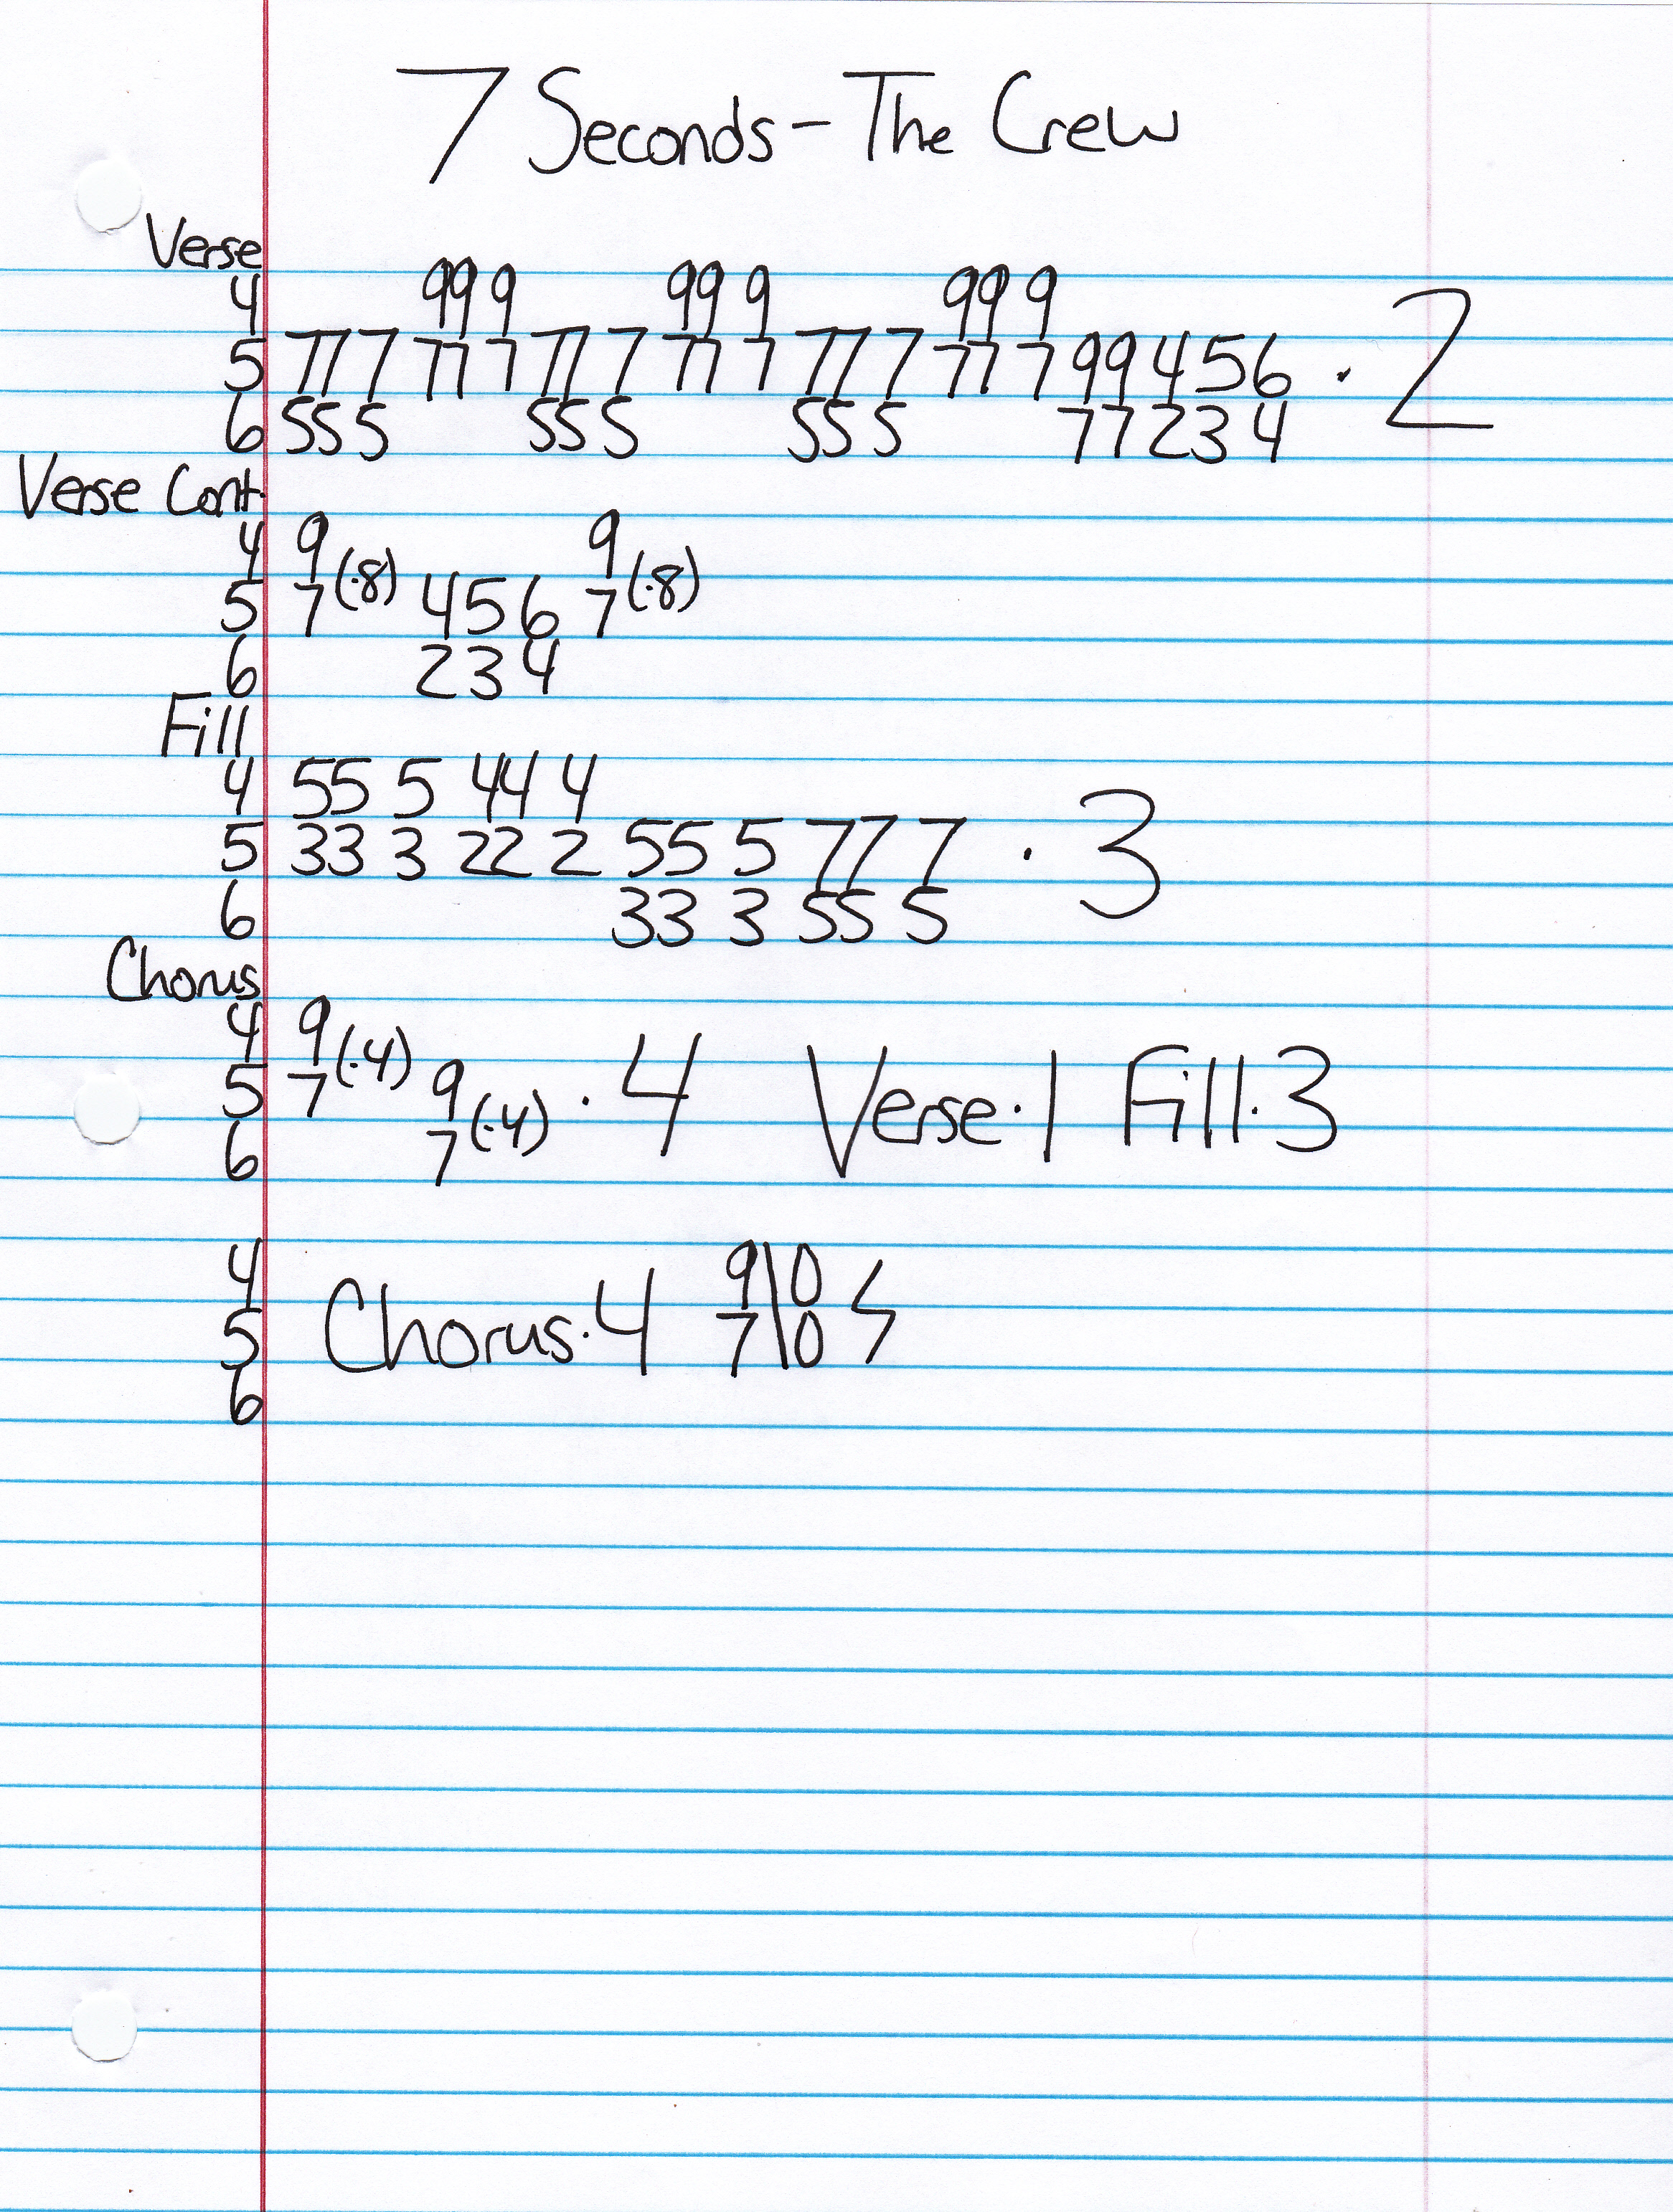 7 Seconds - The Crew
Verse
4 99 9 99 9 99 9
5 77 7 77 7 77 7 77 7 77 7 77 7 99 4 5 6 · 2
6 55 5 55 5 55 5 77 2 3 4
Verse Cont.
4 9 9
5 7 (·8) 4 5 6 7 (·8)
6 2 3 4
Fill
4 55 5 44 4
5 33 3 22 2 55 5 77 7 · 3
6 33 3 55 5
Chorus
4 9 (·4)
5 7 9 (·4) · 4 Verse·1 Fill·3
6 7
4 9\0
5 Chorus·4 7\0
6